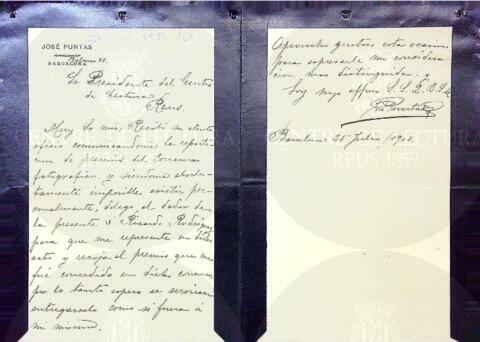 JOSÉ PUNTAS
Balmes 88.
BARCELONA
Sr Presidente del Centro
de Lectura
Reus.
Muy Sr mio, Recibí su atento
oficio comunicandome la reparti-
cion de premios del Concurso
fotografico, y siendome absolu-
tamente imposible asistir per-
sonalmente, delego al dador de
la presente D. Ricardo Rodriguez
para que me represente en dicho
acto y recoja el premio que me
fué concedido en dicho concurso,
por lo tanto espero se serviran
entregarselo como si fuera á
mi mismo.
Aprovecho gustoso esta ocasion
para expresarle mi considera
cion mas distinguida.
Soy muy affmo S. S. Q. B. S. M.
José Puntas
Barcelona 25 Julio
CENTRE DE LECTURA
REUS 1859